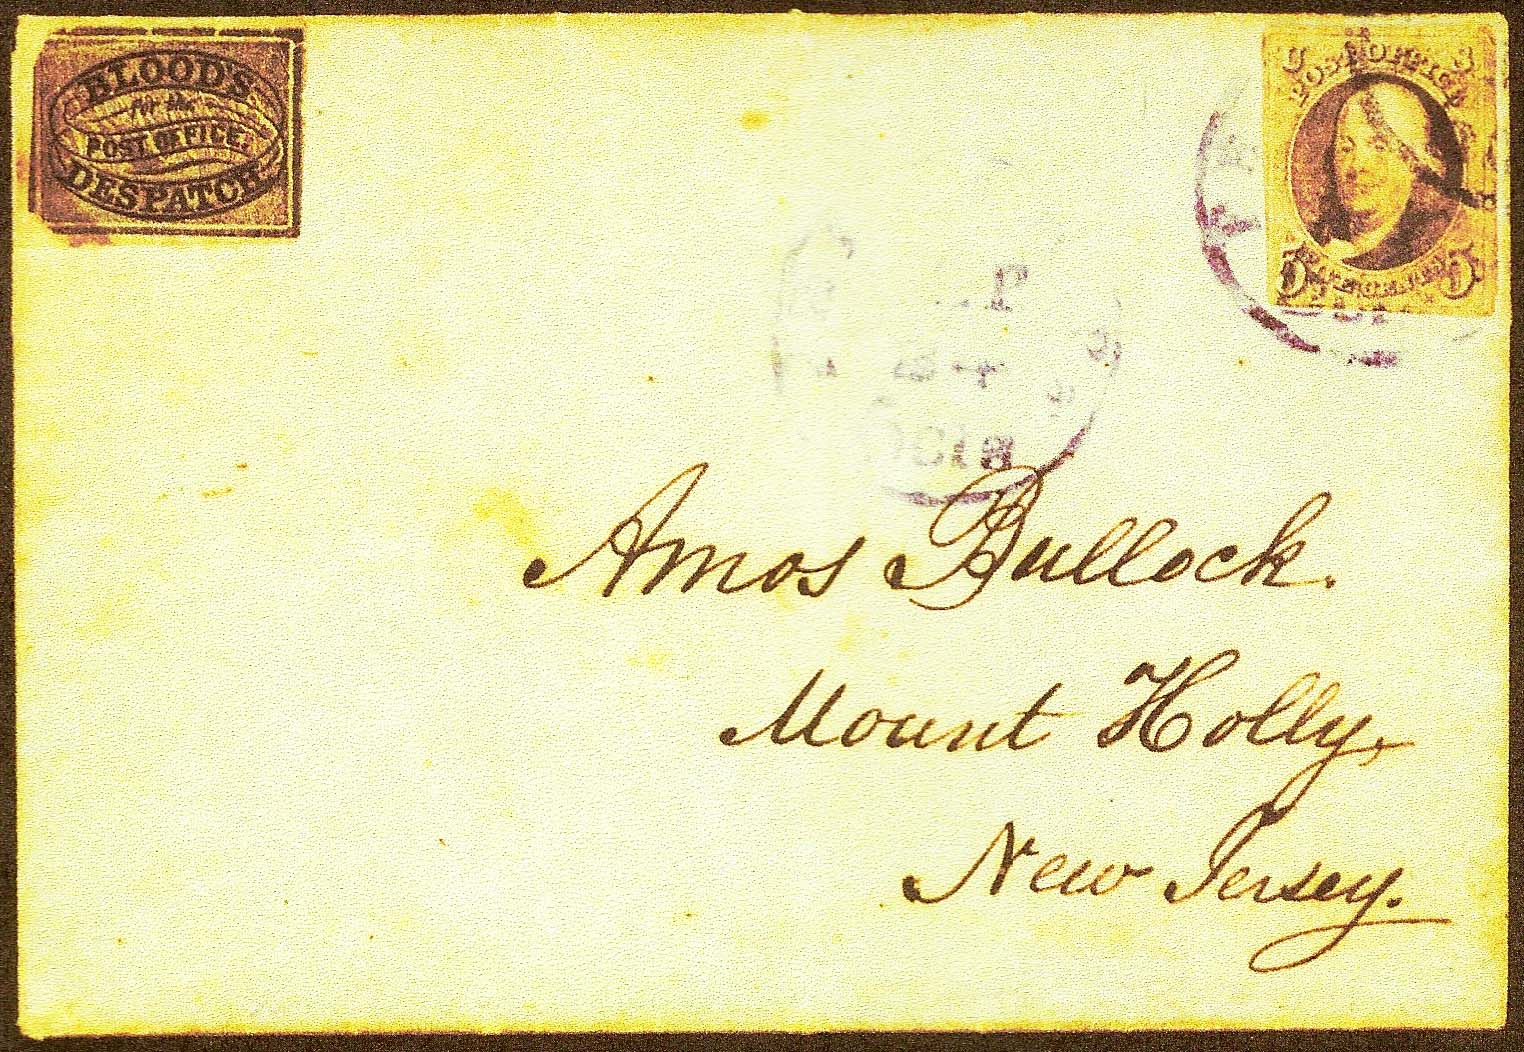 BLOOD'S
for the
POST OFFICE.
DESPATCH
POST OFFICE
5 5
Amos Bullock.
Mount Holly,
New Jersey.